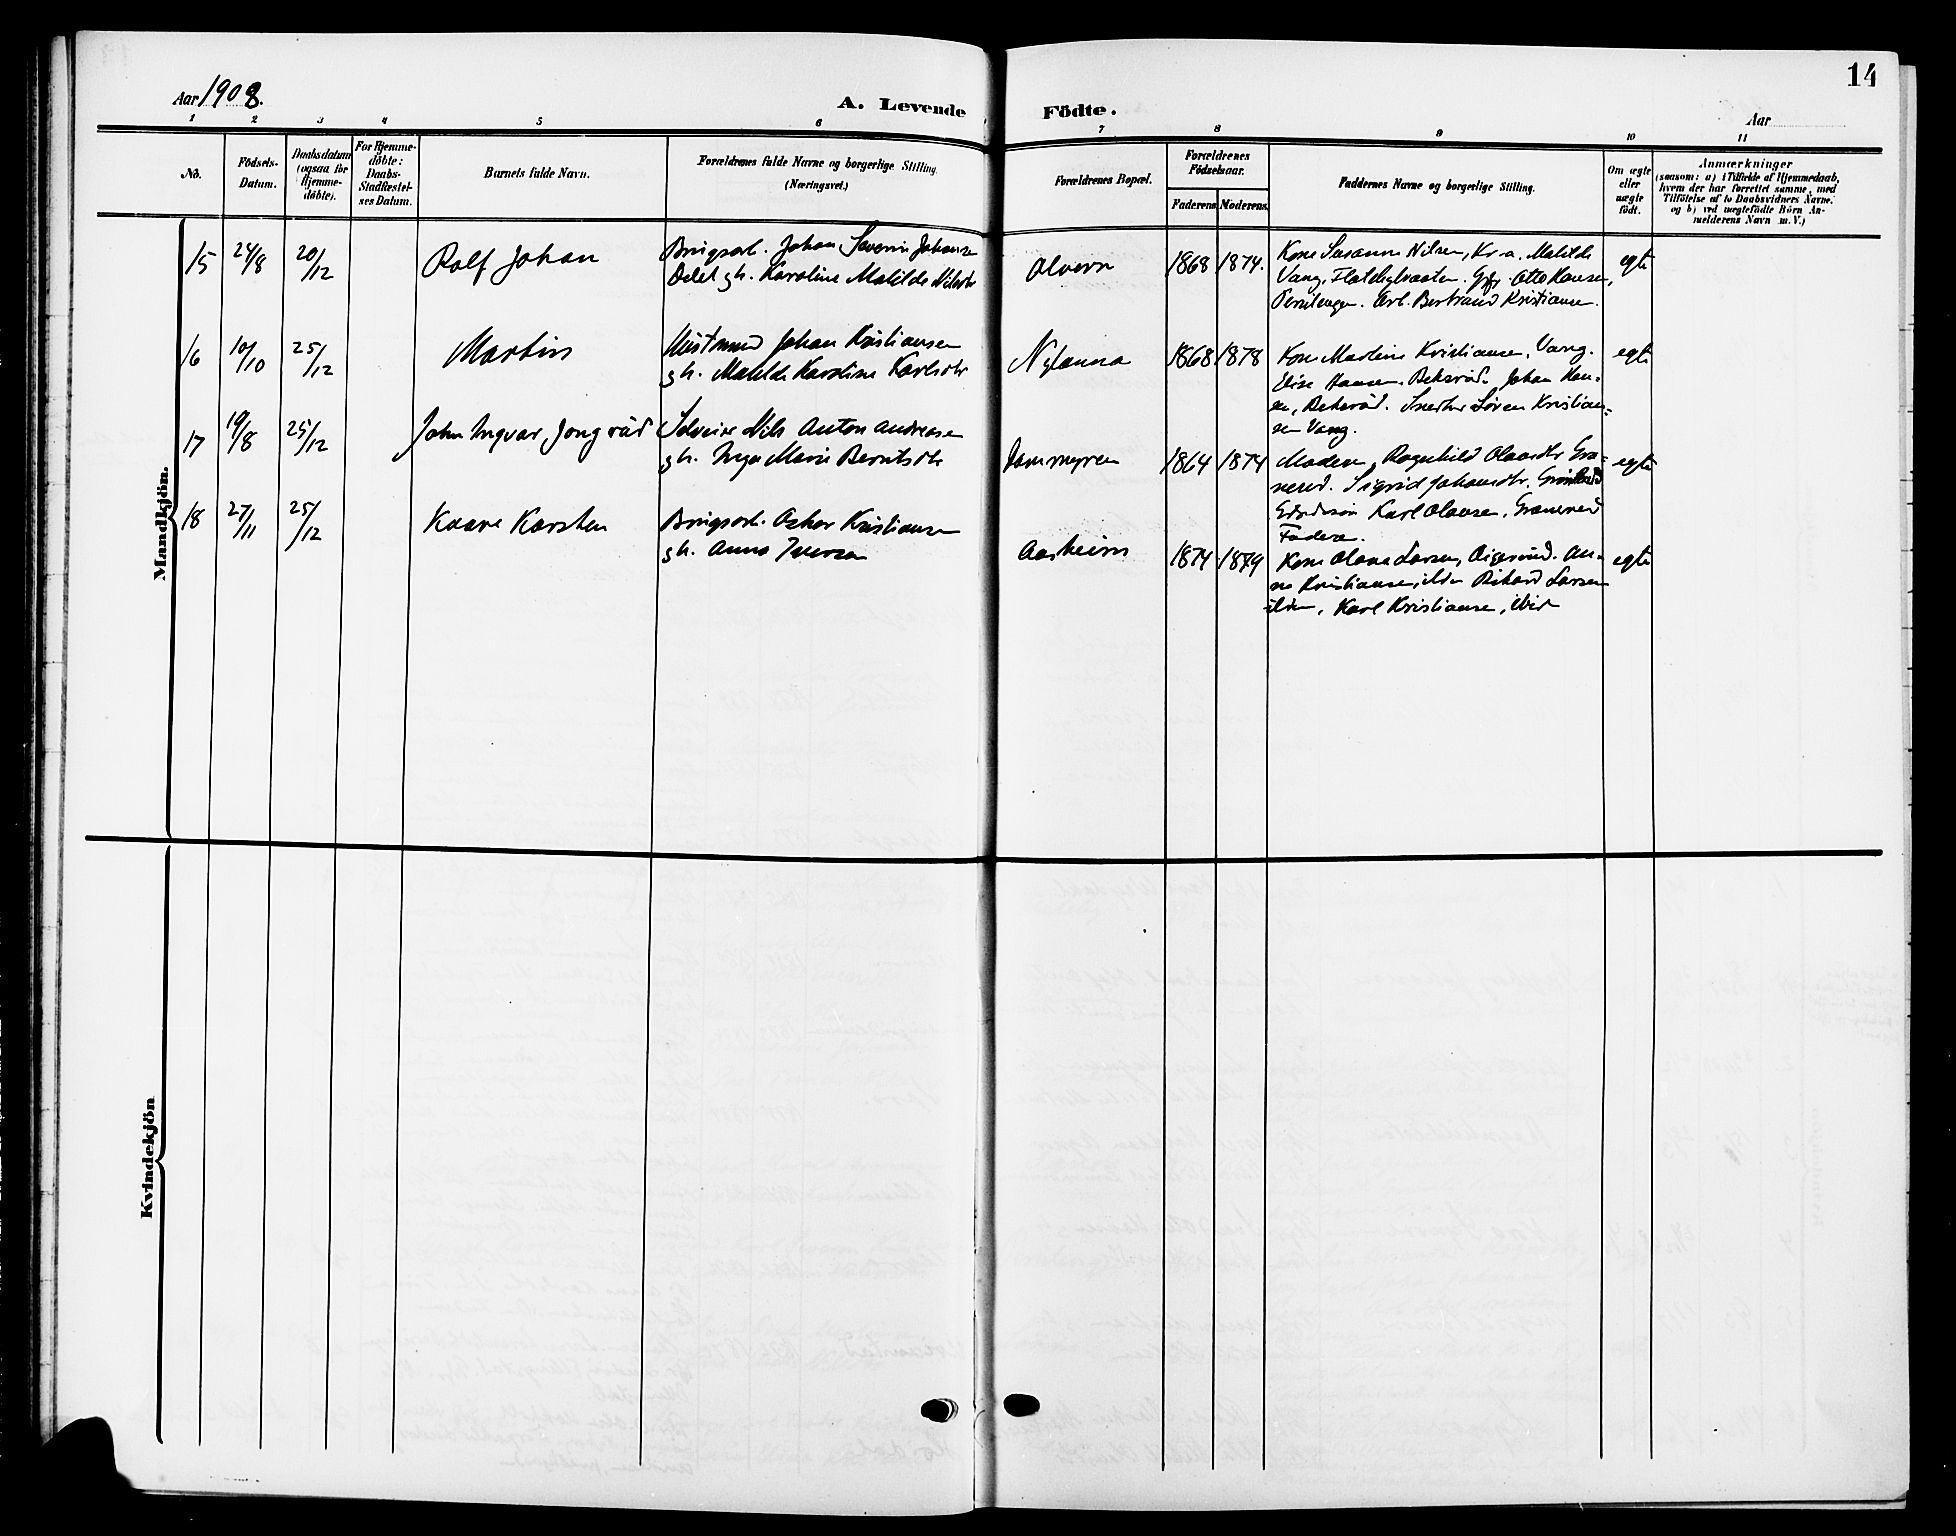 14
Aar 1908.
A. Levende Födte.
Aar
1 2 3 4 5 6 7 8 9 10 11
No.
Födsels-
Datum.
Daabsdatum
(ogsaa for
Hjemme-
döbte).
For Hjemme-
döbte:
Daabs-
Stadfæstel-
ses Datum.
Barnets fulde Navn.
Forældrenes fulde Navne og borgerlige Stilling.
(Næringsvei.)
Forældrenes Bopæl.
Forældrenes
Födselsaar.
Faderens Moderens.
Faddernes Navne og borgerlige Stilling.
Om ægte
eller
uægte
födt.
Anmærkninger
(saasom: a) i Tilfælde af Hjemmedaab,
hvem der har forrettet samme, med
Tilföielse af to Daabsvidners Navne.
og b) ved uægtefödte Börn An-
melderens Navn m. V.)
Mandkjön.
15 24/8 20/12 Rolf Johan
Brugsarb. Johan Severin Johanse
gh. Karoline Matilde Nilsdtr
1868 1874.
Kone Susanne Nilsen, Kr.a. Matilde
Vang, Otto Hansen,
Arb. Bertrand Kristianse.
egte
16 10/10 25/12 Martin
Johan Kristiansen
gh. Matilde Karoline Karlsdtr
1868 1878
Kone Martine Kristiansen, Vang.
Elise Hansen, Johan Han-
sen, Snedker Sören Kristian-
sen Vang.
egte
17 19/8 25/12 John Ingvar
Selveier Nils Anton Andreasen
gh. Inga Marie Berntsdtr
Dammyren
1864 1874
Moderen, Ragnhild Olavsdtr. Gra-
nerud. Sigrid Johansdtr.
Karl Olavsen, Granerud
Faderen.
egte
18 27/11 25/12 Kaare Karsten
Brugsarb. Oskar Kristiansen
gh. Anna Iversen
Aasheim
1874 1879
Kone Olava Larsen, An-
na Kristiansen, Rikard Larsen
Karl Kristiansen, ibid
egte
Kvindekjön